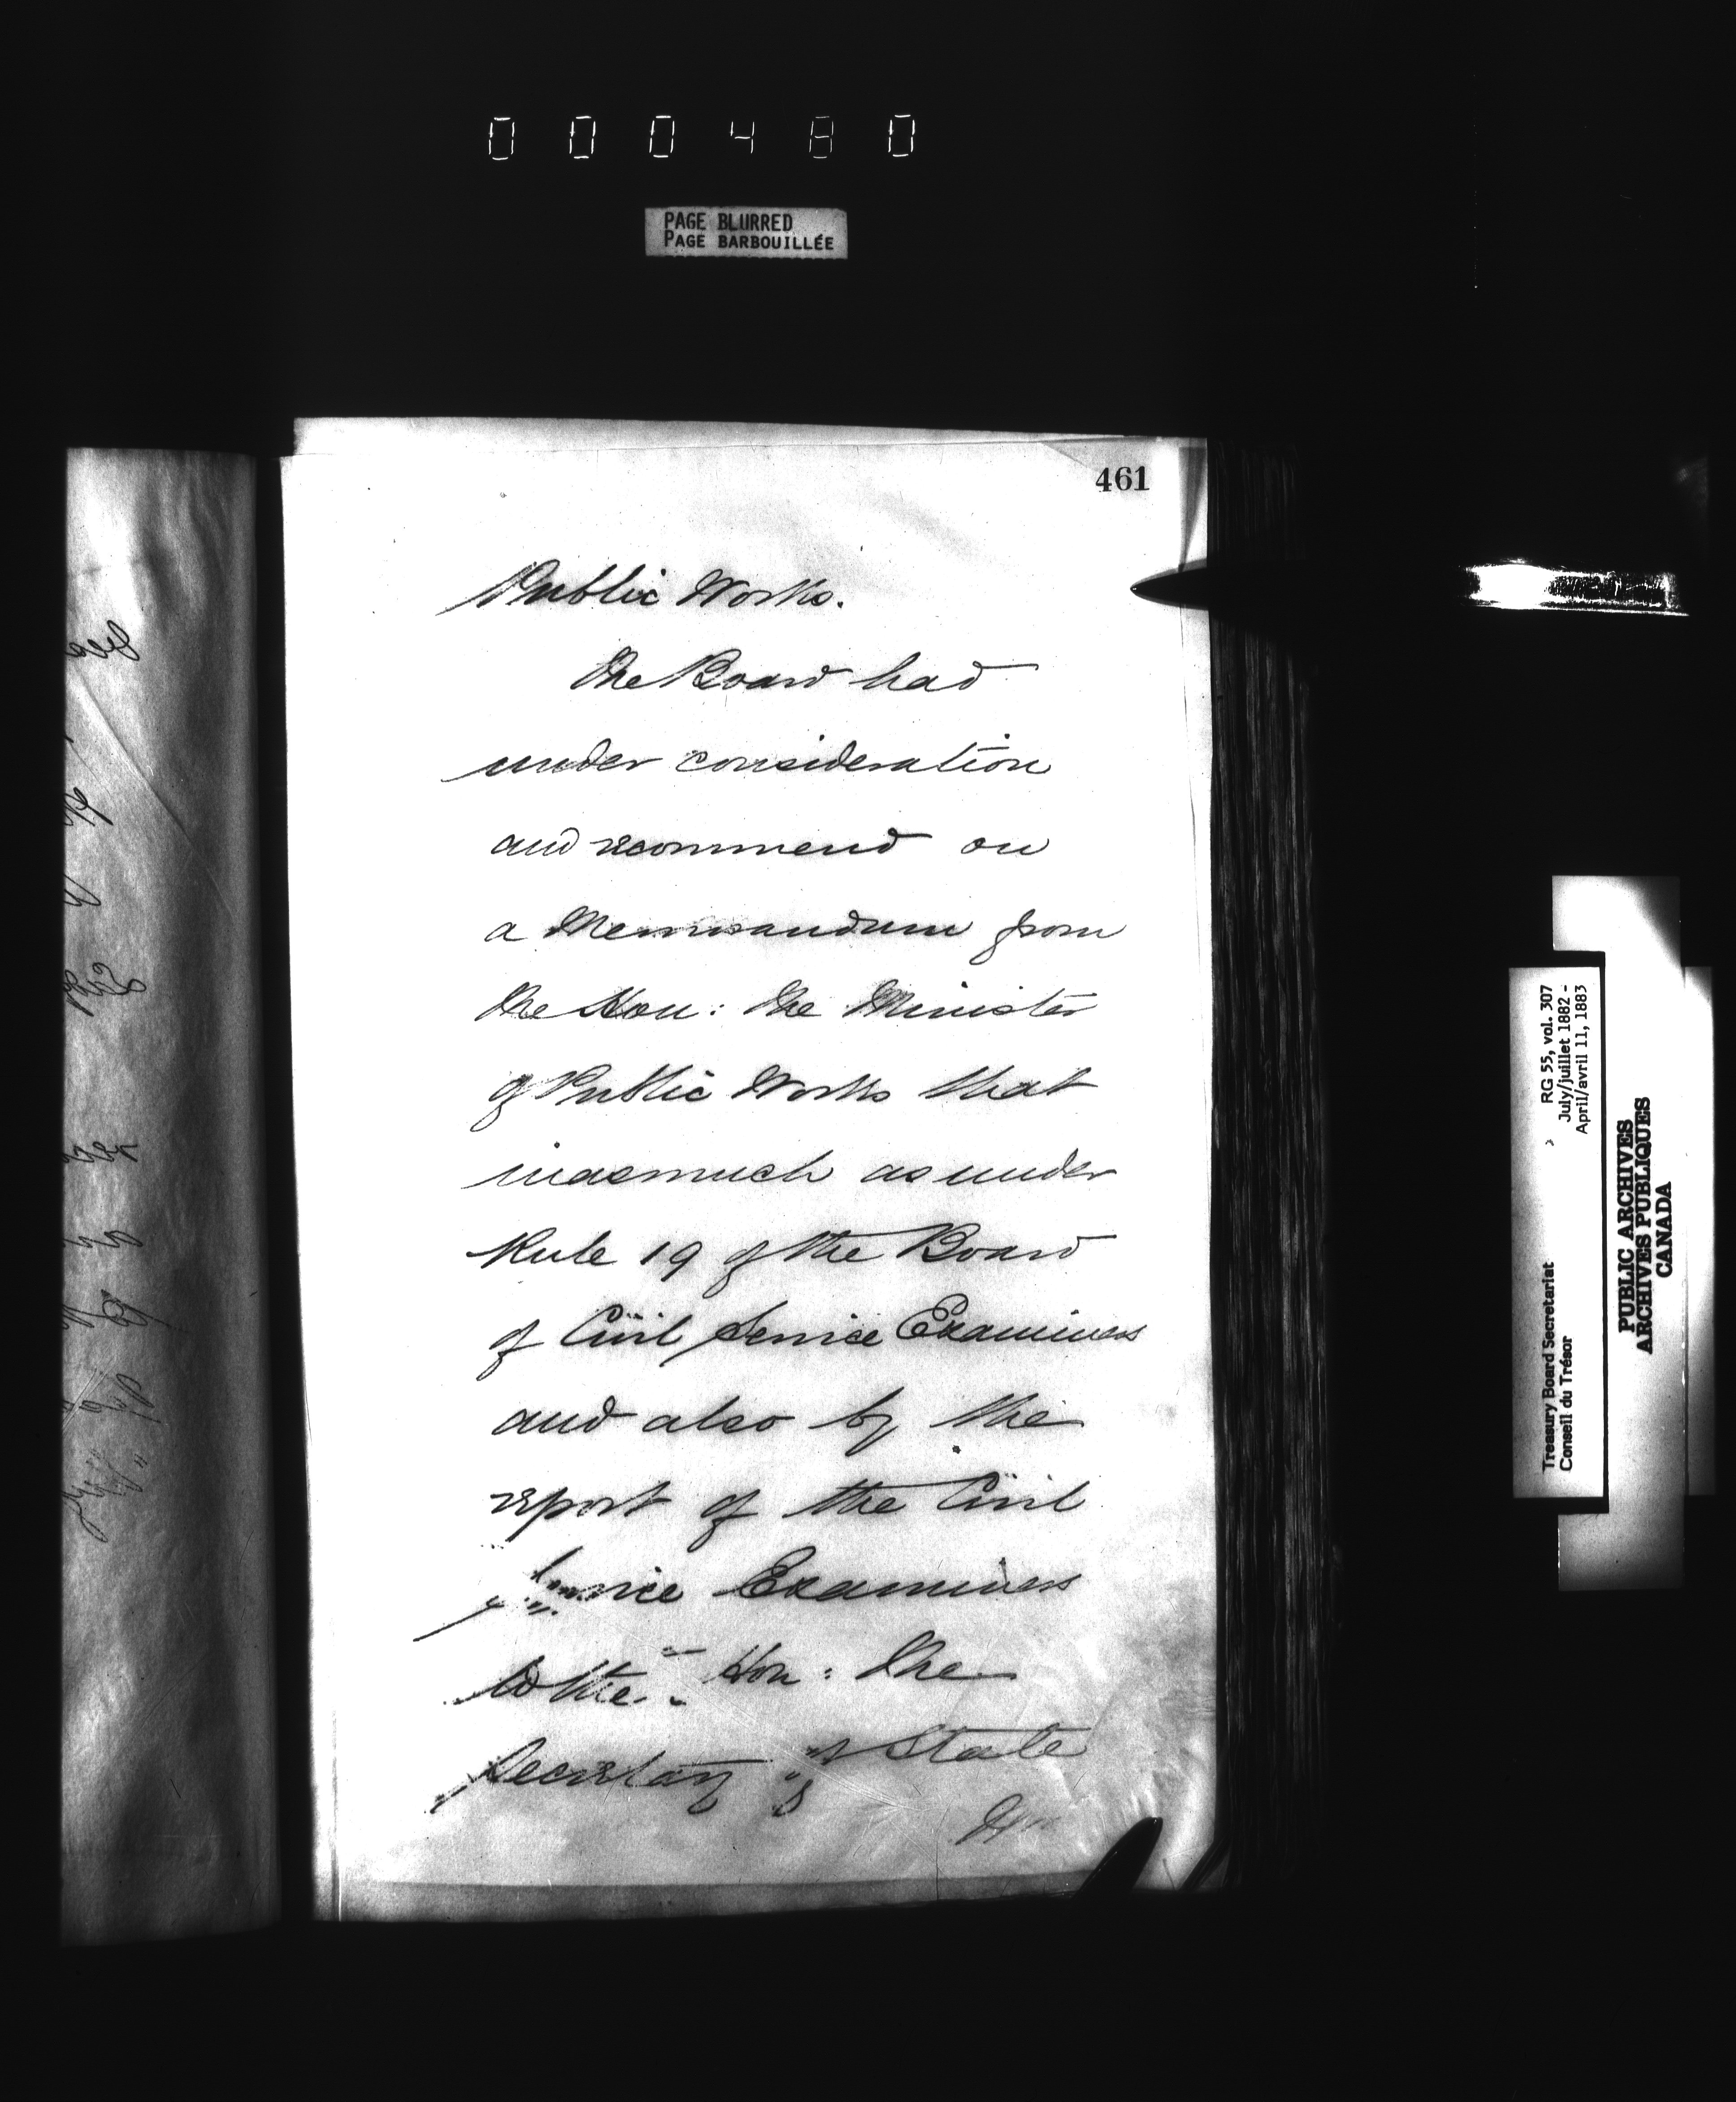 000480
PAGE BLURRED
PAGE BARBOUILLÉE
461
Public Works.
The Board had
under consideration
and recommend on
a Memorandum from
the Hon: the Minister
of Public Works that
inasmuch as under
Rule 19 of the Board
of Civil Service Examiners
and also by the
report of the Civil
Service Examiners
to the Hon: the
Secretary of State
RG 55, vol. 307
July/juillet 1882 -
April/avril 11, 1883
Treasury Board Secretariat
Conseil du Trésor
PUBLIC ARCHIVES
ARCHIVES PUBLIQUES
CANADA